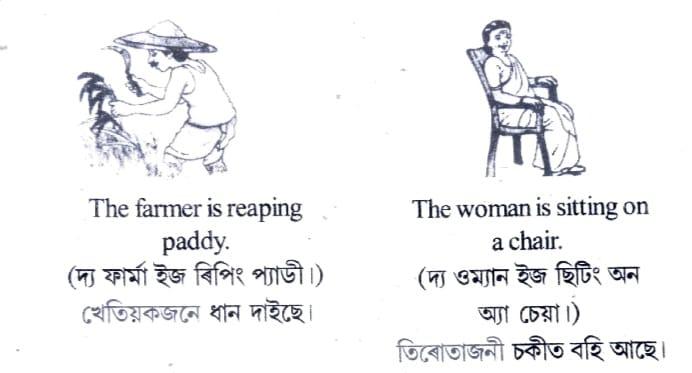 The farmer is reaping
paddy.
(দ্য ফাৰ্মা ইজ ৰিপিং প্যাডী।)
খেতিয়কজনে ধান দাইছে।
The woman is sitting on
a chair.
(দ্য ওম্যান ইজ ছিটিং অন
অ্যা চেয়া।)
তিৰোতাজনী চকীত বহি আছে।